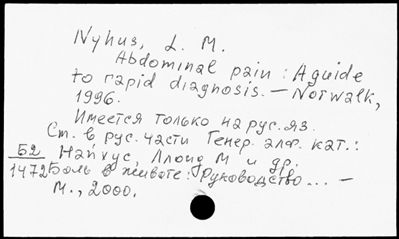 Nyhus, L. M.
Abdominal pain : A guide
to rapid diagnosis. — Norwalk,
1996.
Имеется только на рус. яз.
См. в рус. части Генер. алф. кат.:
Б2
1472
Найхус, Ллойд М и др.
Боль в животе: Руководство... —
М., 2000.